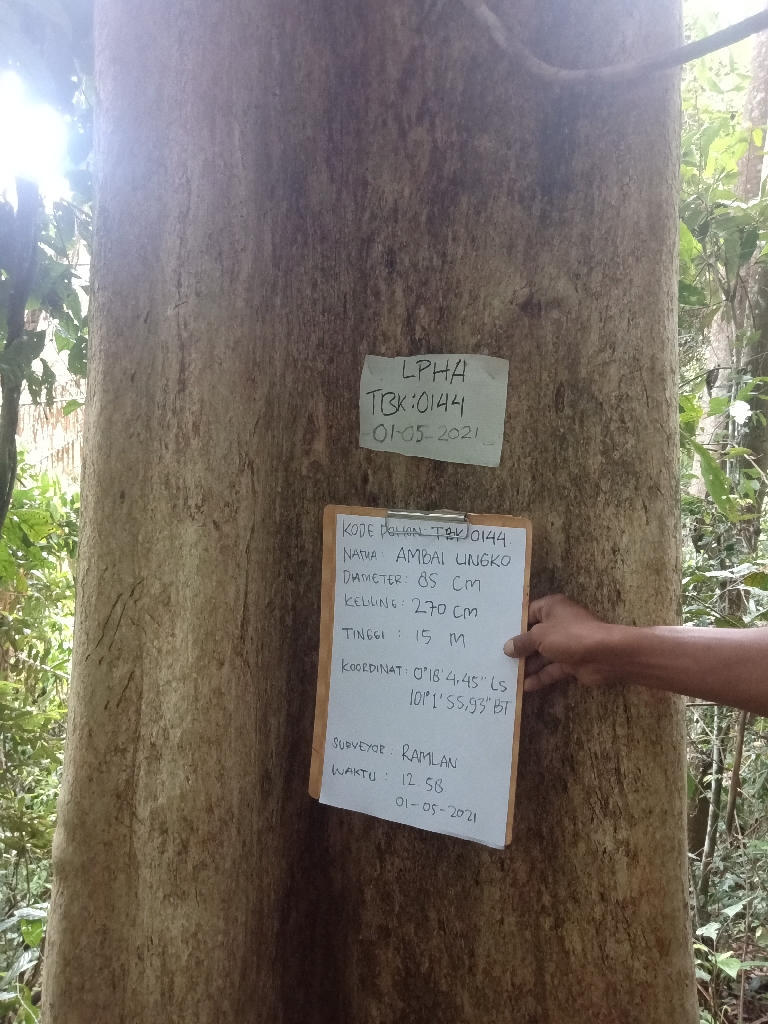 LPHA
TBK:0144
01-05-2021
KODE POHON: TBK 0144
NAMA: AMBAI UNGKO
DIAMETER: 85 CM
KELILING: 270 CM
TINGGI : 15 M
KOORDINAT: 0°18'4,45" LS
101°1'55,93" BT
SURVEYOR: RAMLAN
WAKTU : 12.58
01-05-2021